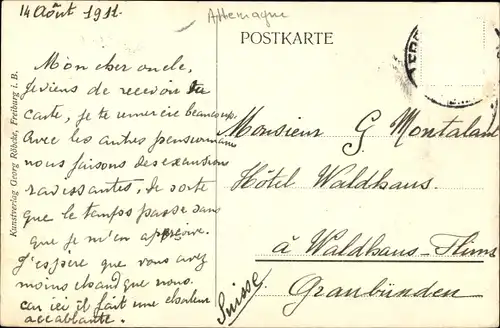 14 Août 1911.
Allemagne
POSTKARTE
Mon cher oncle,
Je viens de recevoir ta
carte, je te remercie beaucoup.
Avec les autres pensionnaires
nous faisons des excursions
ravissantes, de sorte
que le temps passe sans
que je m'en aperçoive.
J'espère que vous avez
moins chaud que nous.
car ici il fait une chaleur
accablante.
Monsieur G. Montalant
Hôtel Waldhaus.
à Waldhaus-Flims
Graubünden
Suisse
Kunstverlag Georg Röbcke, Freiburg i. B.